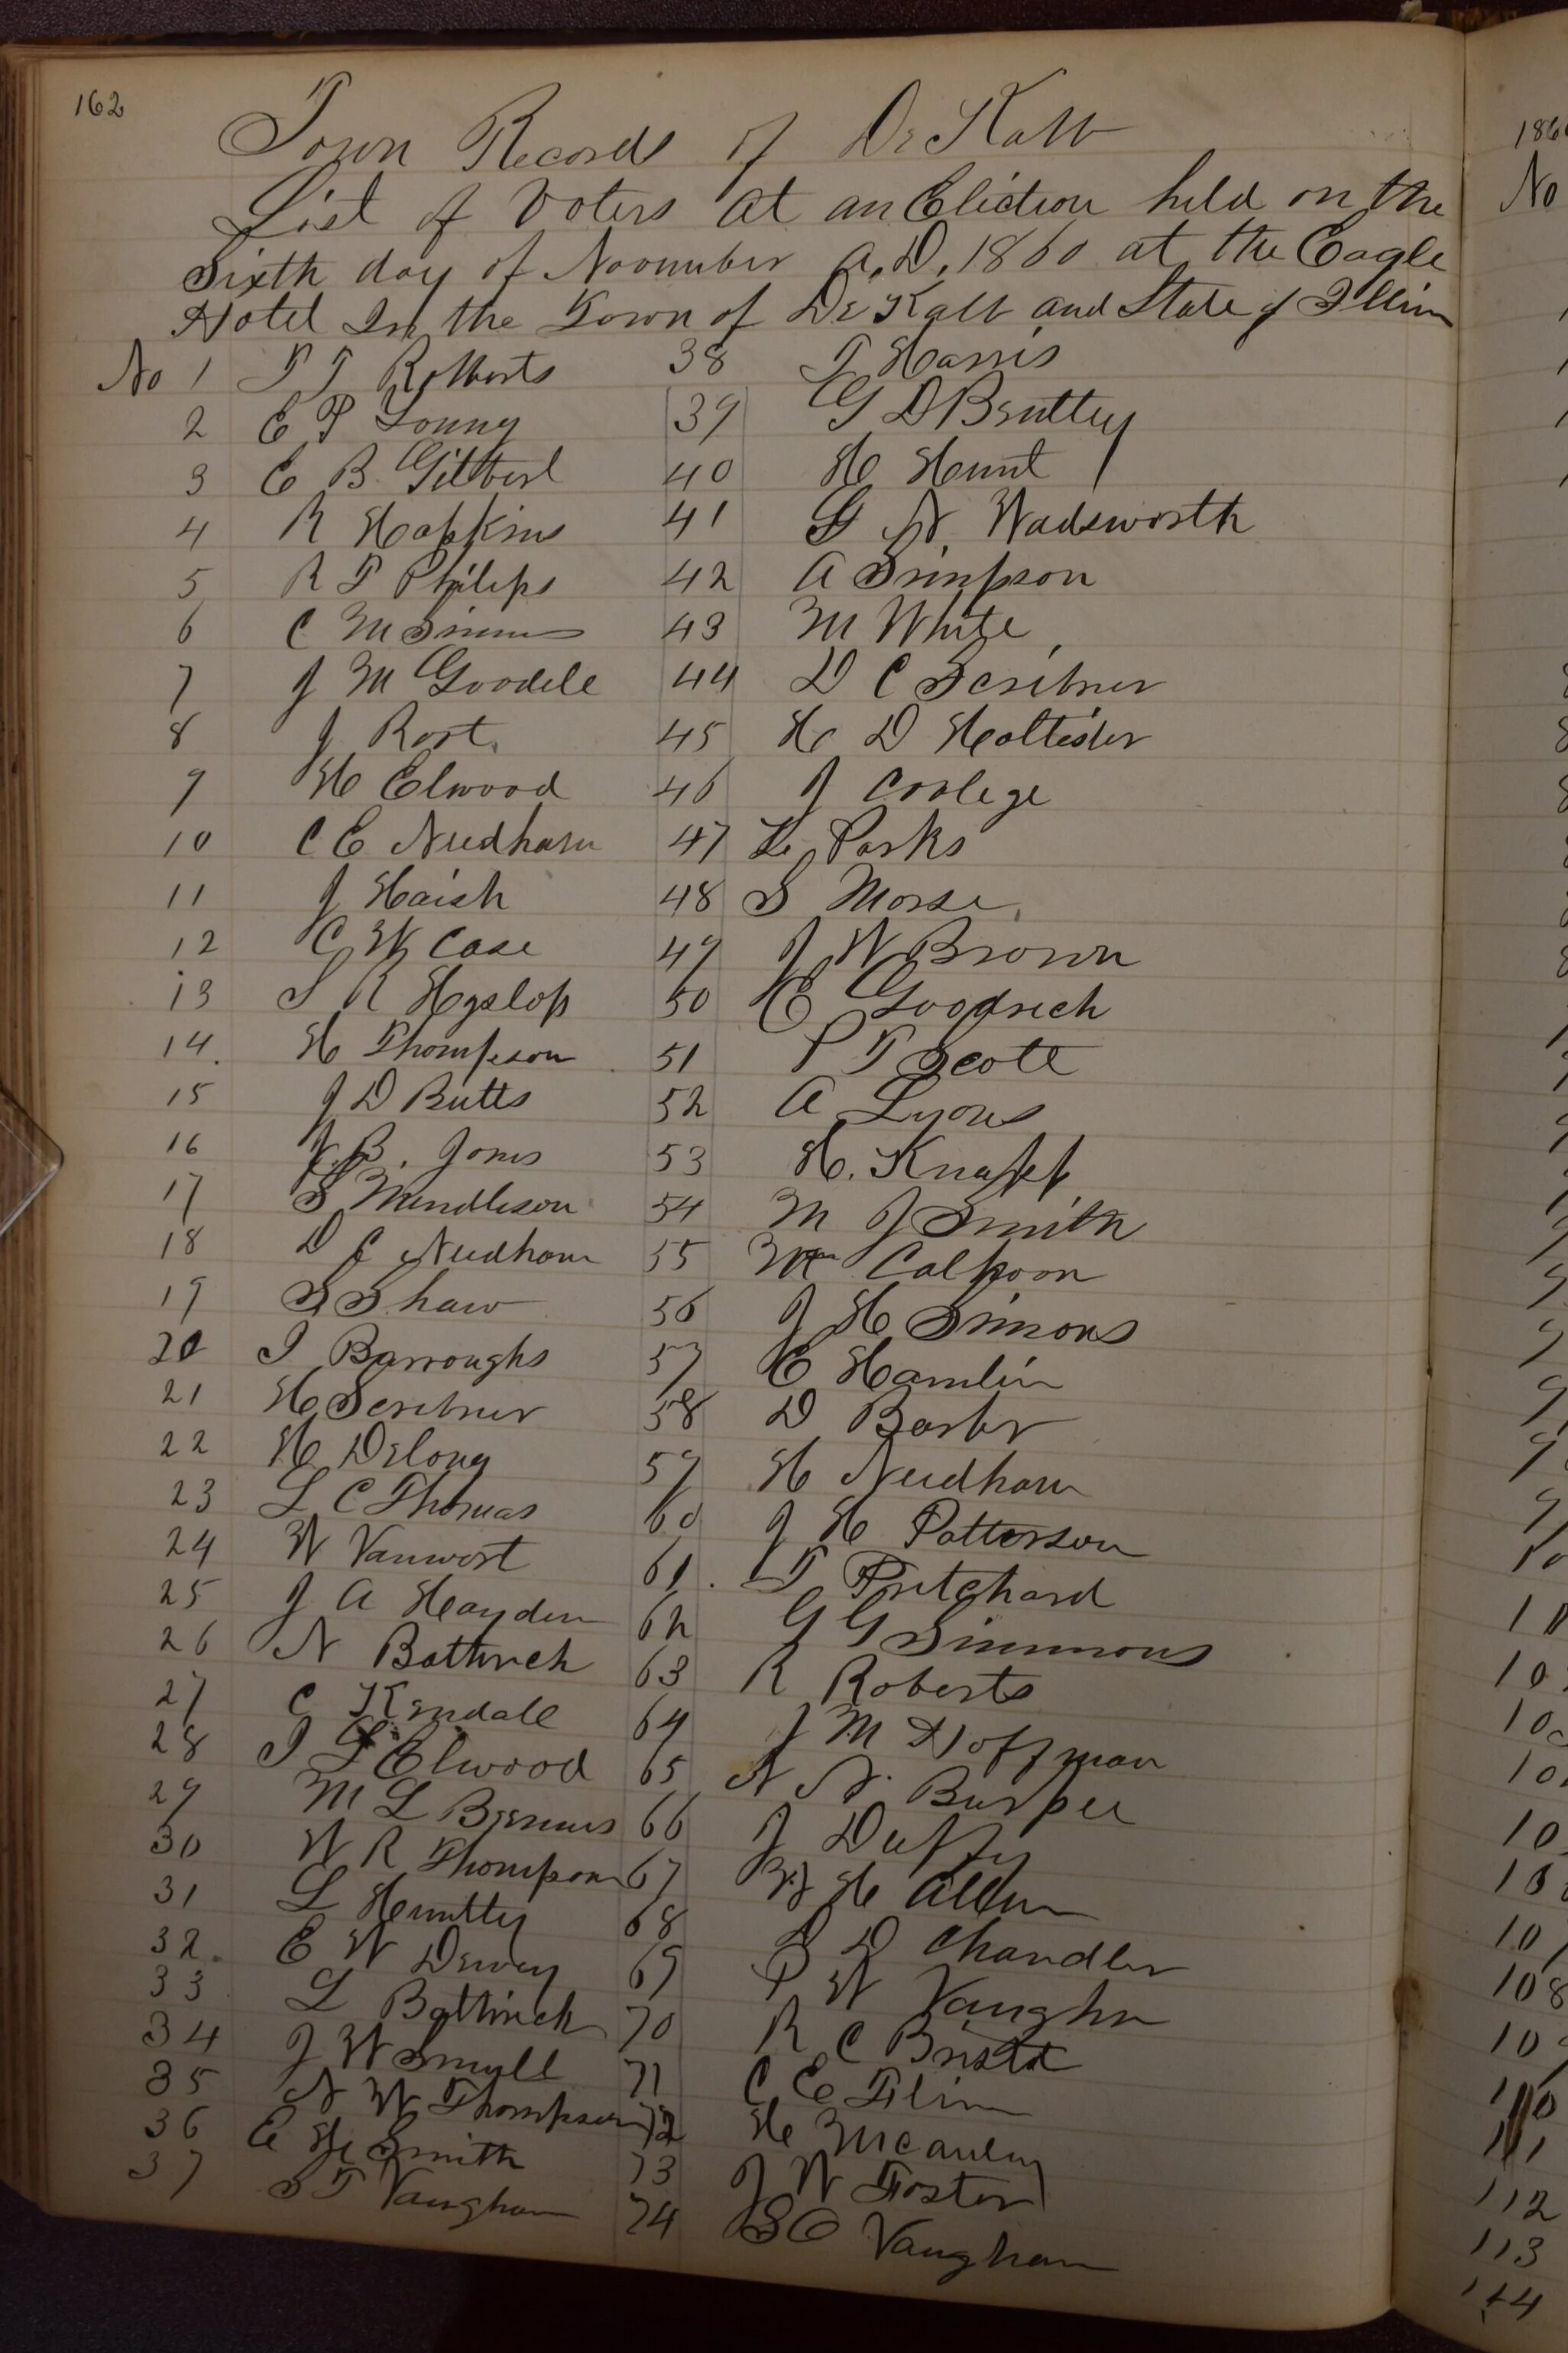 162
Town Records of De Kalb
List of Voters at an Election held on the
Sixth day of November A.D. 1860 at the Eagle
Hotel In the Town of De Kalb and State of Illin
No 1 T Roberts 38 T Harris
2 E P Young 39 G D Bentley
3 E B Gilbert 40 H Hunt
4 R Hopkins 41 G N. Wadsworth
5 R T Philips 42 A Simpson
6 C M Simms 43 M White
7 J M Goodell 44 D C Scribner
8 J Rort. 45 H D Hollister
9 H Elwood 46 J Coolege
10 C E Needham 47 L Parks
11 J Haish 48 S Morse
12 C W Case 49 J W Brown
13 S R Hyslop 50 E Goodrich
14. H Thompson 51 P T Scott
15 J D Butts 52 A Lyons
16 J. B. Jones 53 H. Knapp
17 S Mendleson 54 M J Smith
18 D C Needham 55 Wm Calhoon
19 S Shaw 56 J H Simons
20 I Barroughs 57 E Hamlin
21 H Scribner 58 D Barber
22 H Delong 59 H Needham
23 L C Thomas 60 J H Patterson
24 W Vanwort 61. T Pritchard
25 J A Hayden 62 G G Simmons
26 N Bottwick 63 R Roberts
27 C Kendall 64 J M Hoffman
28 I L Elwood 65 N N. Burpee
29 M L 66 J Duffy
30 W R Thompson 67 H Allen
31 L Huntley 68 D Chandler
32. E W Dewey 69 P W Vaughn
33 L Bottwick 70 R C
34 J W Small 71 C E Flinn
35 N W Thompson 72 H McCauley
36 E H Smith 73 J W Foster
37 S T Vaughan 74 S O Vaughan
186
No
108
110
111
112
113
114